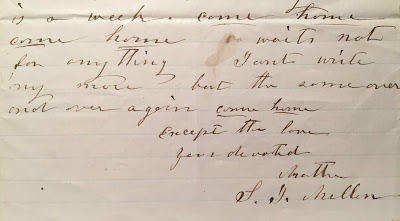 is a week. come home
come home waits not
for anything I ant write
my more but the same over
and over again come home
Except the love
your devoted
Mother
S. J. Mellen